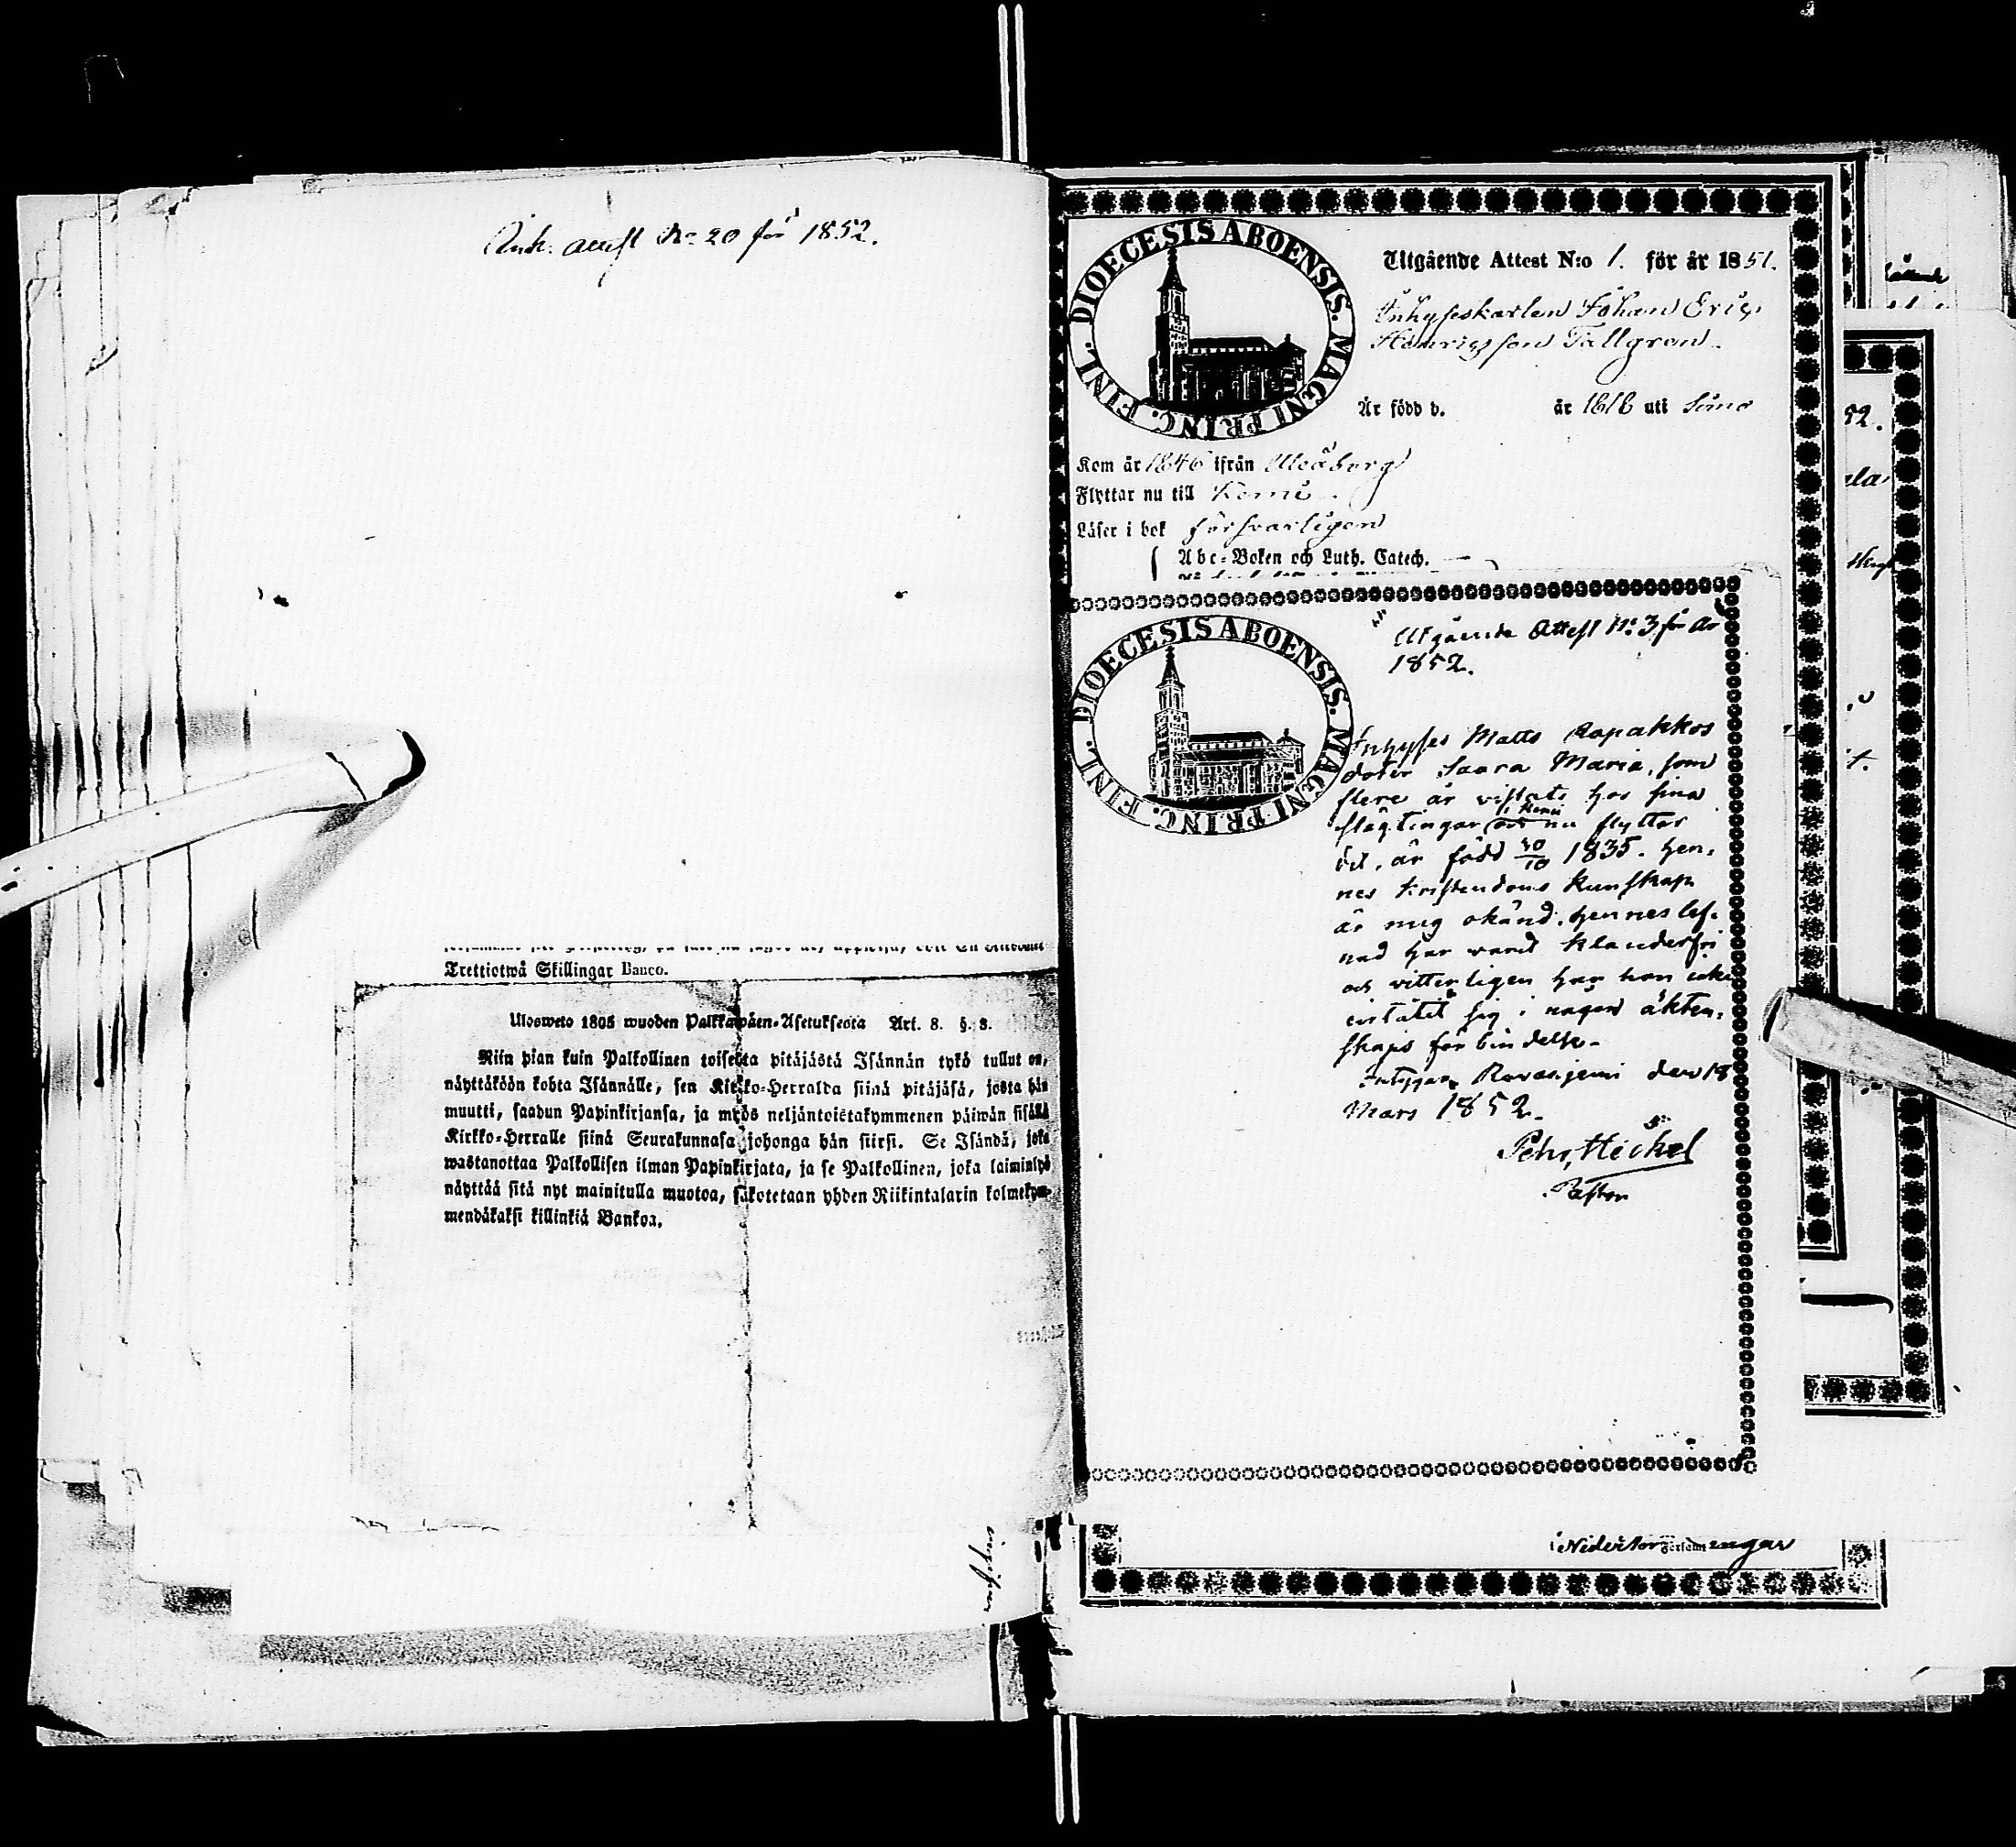 attest No 20 för 1852.
Trettiotwå Skillingar Banco.
Ulosweto 1805 wuoden Palkkawäen-Asetuksesta Art. 8. §. 8.
Niin pian kuin Palkollinen toisesta pitäjästä Isännän tykö tullut on,
näyttäköön kohta Isännälle, sen Kirkko-Herralda siinä pitäjäsä, josta hän
muutti, saadun Papinkirjansa, ja myös neljäntoistakymmenen päiwän sisällä
Kirkko-Herralle siinä Seurakunnasa johonga hän siirsi. Se Isändä, joka
wastanottaa Palkollisen ilman Papinkirjata, ja se Palkollinen, joka laiminlyö
näyttää sitä nyt mainitulla muotoa, sakotetaan yhden Riikintalarin kolmekym-
mendäkaksi killinkiä Bankoa.
DIOECESIS ABOENSIS. MAGNI PRINC. FINL.
Utgående Attest N:o 1. för år 1851.
Inhyseskarlen Johan Eric
Henricsson Tallgren.
Är född d. år 1818 uti Simo
Kom år 1846 ifrån Uleåborg
Flyttar nu till Kemi.
Läser i bok försvarligen
Abc-Boken och Luth. Catech.
DIOECESIS ABOENSIS. MAGNI PRINC. FINL.
Utgående Attest No 3 för år
1852.
Inhyses Matts Ropakkos
doter Saara Maria, som
flere år vistats hos sina
slägtingar i Kemi nu flyttar
dit, är född 30/10 1835. Hen-
nes kristendoms kunskap
är mig okänd. Hennes lef-
nad har varit klanderfri
och vitterligen har hon icke
inlåtit sig i någon äkten-
skaps förbindelse.
Intygar, Rovaniemi den 18
Mars 1852.
Pehr Heickel
Pastor